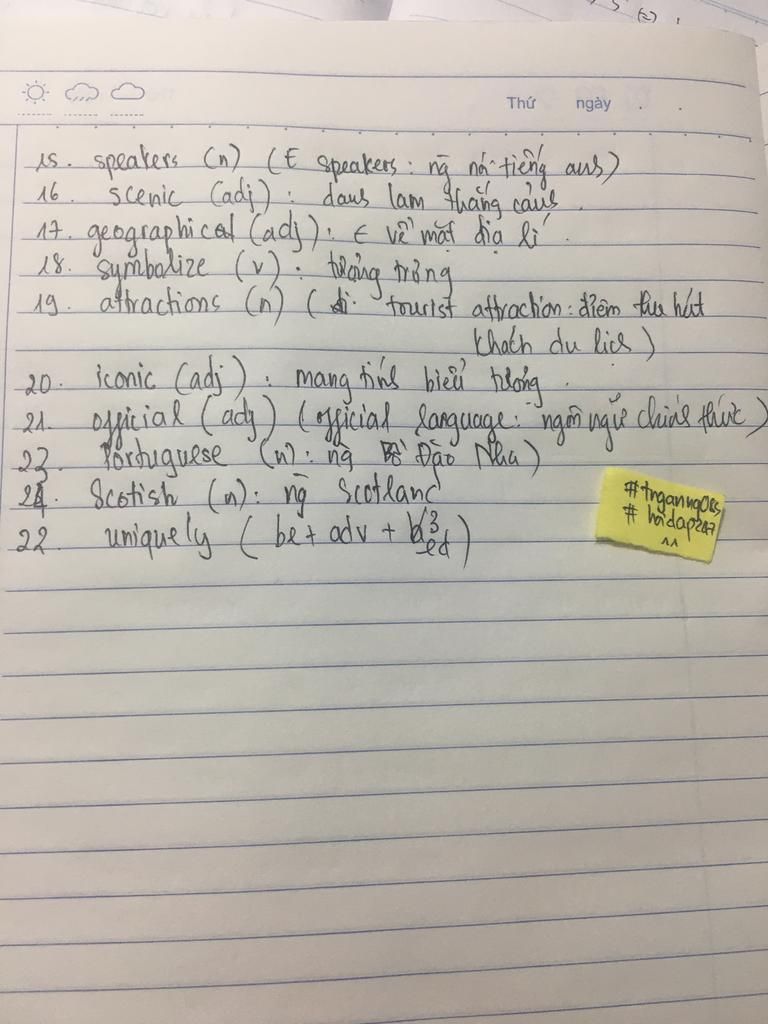 Thứ ngày . .
15. speakers (n) (E speakers: ng̃ nói tiếng anh)
16. scenic (adj): danh lam thắng cảnh.
17. geographical (adj): ∈ về mặt địa lí.
18. symbolize (v): tượng trưng
19. attractions (n) ( tourist attraction: điểm thu hút
khách du lịch)
20. iconic (adj): mang tính biểu tượng.
21. official (adj) (official language: ngôn ngữ chính thức)
23. Portuguese (n): ng̃ Bồ Đào Nha)
24. Scotish (n): ng̃ Scotland
22. uniquely (be + adv + V3
ed)
#tnganng085
#hoidap247
^^